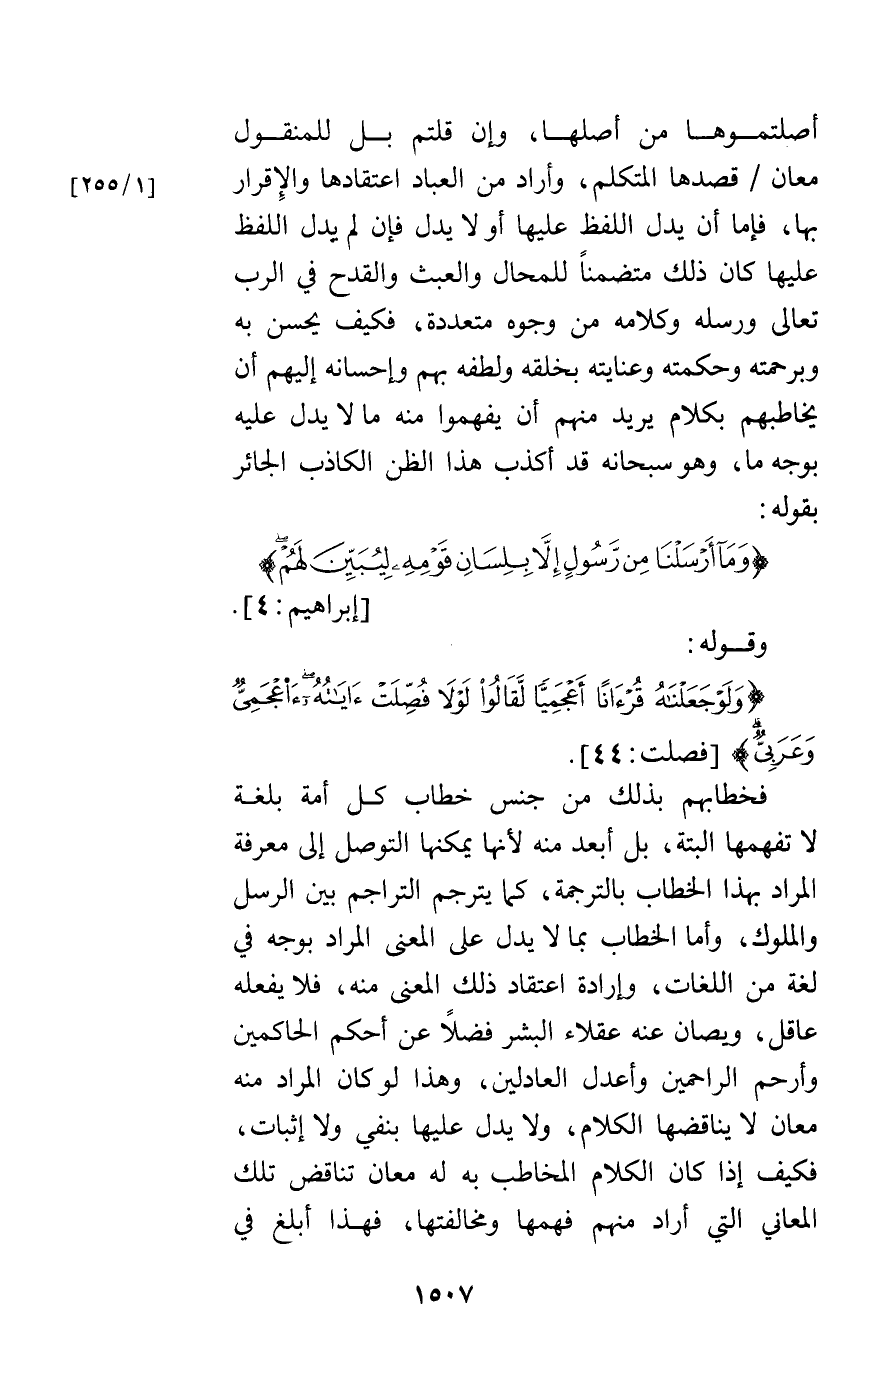 أصلتمــوهــا من أصلهــا، وإن قلتم بــل للمنقول
معان / قصدها المتكلم، وأراد من العباد اعتقادها والإقرار [٢٥٥/١]
بها، فإما أن يدل اللفظ عليها أو لا يدل فإن لم يدل اللفظ
عليها كان ذلك متضمناً للمحال والعبث والقدح في الرب
تعالى ورسله وكلامه من وجوه متعددة، فكيف يحسن به
وبرحمته وحكمته وعنايته بخلقه ولطفه بهم وإحسانه إليهم أن
يخاطبهم بكلام يريد منهم أن يفهموا منه ما لا يدل عليه
بوجه ما، وهو سبحانه قد أكذب هذا الظن الكاذب الجائر
بقوله:
﴿وَمَآ أَرْسَلْنَا مِن رَّسُولٍ إِلَّا بِلِسَانِ قَوْمِهِۦ لِيُبَيِّنَ لَهُمْۖ﴾
[إبراهيم: ٤].
وقــوله:
﴿وَلَوْ جَعَلْنَٰهُ قُرْءَانًا أَعْجَمِيًّا لَّقَالُوا۟ لَوْلَا فُصِّلَتْ ءَايَٰتُهُۥٓۖ ءَا۬عْجَمِىٌّ
وَعَرَبِىٌّۗ﴾ [فصلت: ٤٤].
فخطابهم بذلك من جنس خطاب كــل أمة بلغــة
لا تفهمها البتة، بل أبعد منه لأنها يمكنها التوصل إلى معرفة
المراد بهذا الخطاب بالترجمة، كما يترجم التراجم بين الرسل
والملوك، وأما الخطاب بما لا يدل على المعنى المراد بوجه في
لغة من اللغات، وإرادة اعتقاد ذلك المعنى منه، فلا يفعله
عاقل، ويصان عنه عقلاء البشر فضلاً عن أحكم الحاكمين
وأرحم الراحمين وأعدل العادلين، وهذا لو كان المراد منه
معان لا يناقضها الكلام، ولا يدل عليها بنفي ولا إثبات،
فكيف إذا كان الكلام المخاطب به له معان تناقض تلك
المعاني التي أراد منهم فهمها ومخالفتها، فهــذا أبلغ في
١٥٠٧